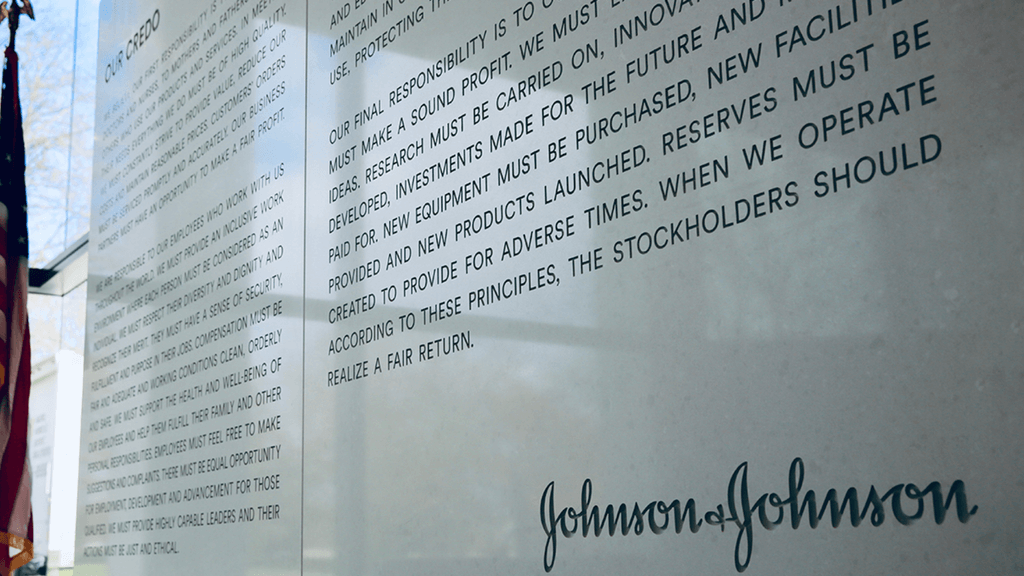 OUR CREDO
OUR FIRST RESPONSIBILITY IS
AND NURSES, TO MOTHERS AND
USE OUR PRODUCTS AND SERVICES. IN
THEIR NEEDS EVERYTHING WE DO MUST BE OF HIGH QUALITY.
WE MUST CONSTANTLY STRIVE TO PROVIDE VALUE, REDUCE OUR
COSTS AND MAINTAIN REASONABLE PRICES. CUSTOMERS' ORDERS
MUST BE SERVICED PROMPTLY AND ACCURATELY. OUR BUSINESS
PARTNERS MUST HAVE AN OPPORTUNITY TO MAKE A FAIR PROFIT.
WE ARE RESPONSIBLE TO OUR EMPLOYEES WHO WORK WITH US
THROUGHOUT THE WORLD. WE MUST PROVIDE AN INCLUSIVE WORK
ENVIRONMENT WHERE EACH PERSON MUST BE CONSIDERED AS AN
INDIVIDUAL. WE MUST RESPECT THEIR DIVERSITY AND DIGNITY AND
RECOGNIZE THEIR MERIT. THEY MUST HAVE A SENSE OF SECURITY,
FULFILLMENT AND PURPOSE IN THEIR JOBS. COMPENSATION MUST BE
FAIR AND ADEQUATE AND WORKING CONDITIONS CLEAN, ORDERLY
AND SAFE. WE MUST SUPPORT THE HEALTH AND WELL-BEING OF
OUR EMPLOYEES AND HELP THEM FULFILL THEIR FAMILY AND OTHER
PERSONAL RESPONSIBILITIES. EMPLOYEES MUST FEEL FREE TO MAKE
SUGGESTIONS AND COMPLAINTS. THERE MUST BE EQUAL OPPORTUNITY
FOR EMPLOYMENT, DEVELOPMENT AND ADVANCEMENT FOR THOSE
QUALIFIED. WE MUST PROVIDE HIGHLY CAPABLE LEADERS AND THEIR
ACTIONS MUST BE JUST AND ETHICAL.
MAINTAIN IN
USE, PROTECTING
OUR FINAL RESPONSIBILITY IS TO
MUST MAKE A SOUND PROFIT. WE MUST
IDEAS. RESEARCH MUST BE CARRIED ON,
DEVELOPED, INVESTMENTS MADE FOR THE FUTURE AND
PAID FOR. NEW EQUIPMENT MUST BE PURCHASED, NEW
PROVIDED AND NEW PRODUCTS LAUNCHED. RESERVES MUST BE
CREATED TO PROVIDE FOR ADVERSE TIMES. WHEN WE OPERATE
ACCORDING TO THESE PRINCIPLES, THE STOCKHOLDERS SHOULD
REALIZE A FAIR RETURN.
Johnson & Johnson